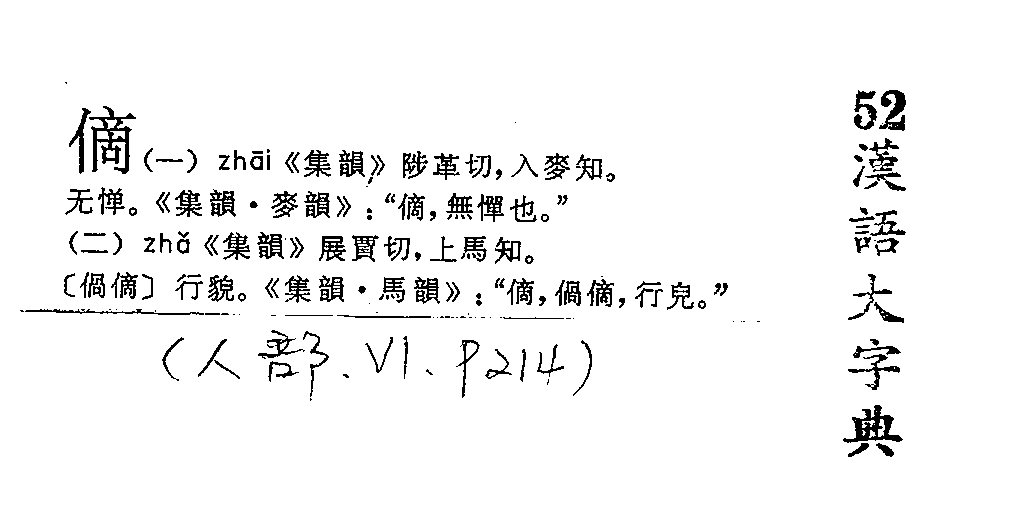 傏(一) zhāi《集韻》陟革切，入麥知。
无惮。《集韻·麥韻》：“傏，無憚也。”
(二) zhǎ《集韻》展賈切，上馬知。
〔㑻傏〕行貌。《集韻·馬韻》：“傏，㑻傏，行皃。”
（人部、V1、P214）
52
漢語大字典